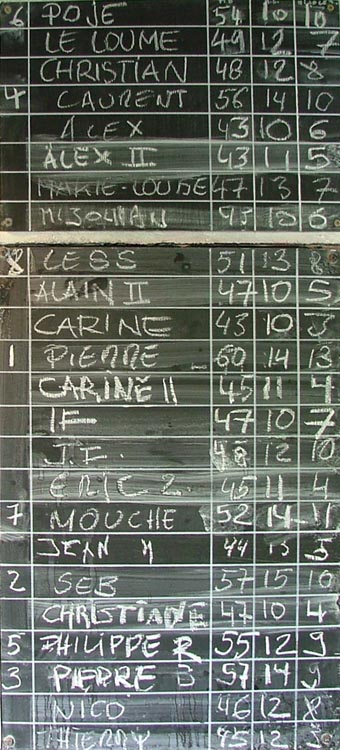 6 POJE 54 10 10
LE LOUME 49 12 7
CHRISTIAN 48 12 8
4 LAURENT 56 14 10
ALEX 43 10 6
ALEX II 43 11 5
MARIE-LOUISE 47 13 7
10 6
8 LESS 51 13 8
ALAIN II 47 10 5
CARINE 43 10 3
1 PIERRE 60 14 13
CARINE II 45 11 4
IF 47 10 7
J.F. 12 10
ERIC 2 45 11 4
7 MOUCHE 52 14 11
JEAN M 44 13 5
2 SEB 57 15 10
CHRISTIANE 47 10 4
5 PHILIPPE R 55 12 9
3 PIERRE B 57 14 9
NICO 46 12 8
THIERRY 45 12